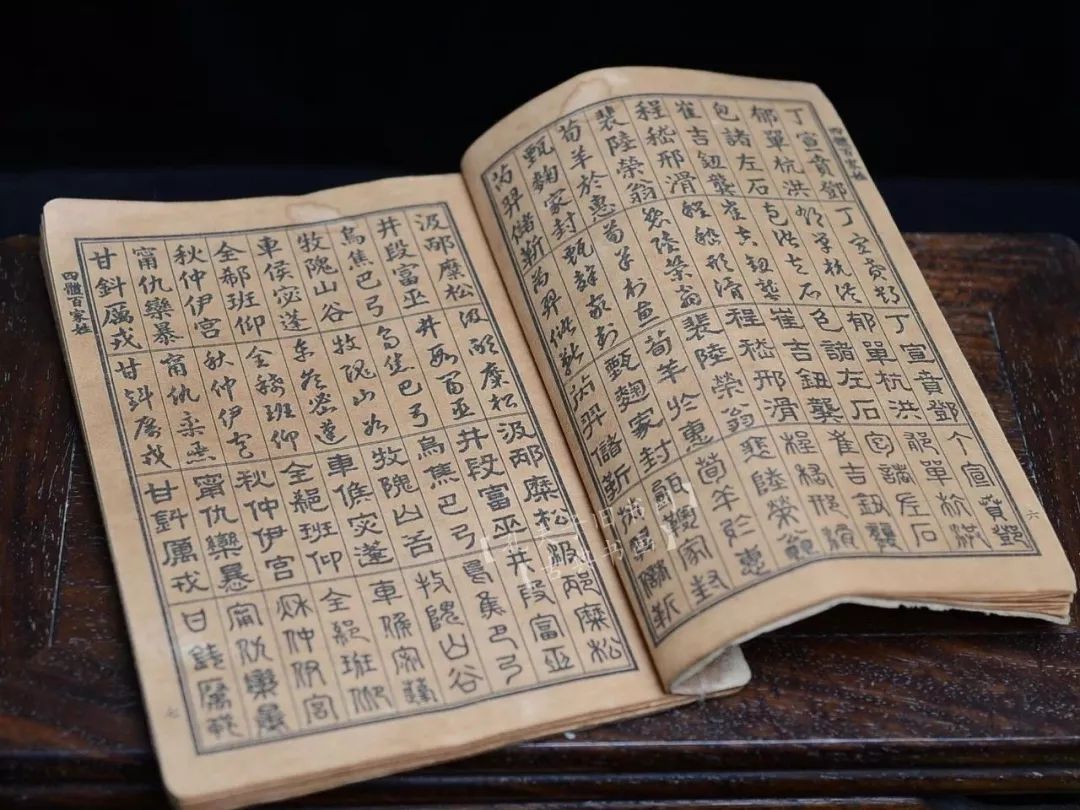 四體百家姓
六
丁宣賁鄧 丁宣賁鄧 丁宣賁鄧 丁宣賁鄧
郁單杭洪 郁單杭洪 郁單杭洪 郁單杭洪
包諸左石 包諸左石 包諸左石 包諸左石
崔吉鈕龔 崔吉鈕龔 崔吉鈕龔 崔吉鈕龔
程嵇邢滑 程嵇邢滑 程嵇邢滑 程嵇邢滑
裴陸榮翁 裴陸榮翁 裴陸榮翁 裴陸榮翁
荀羊於惠 荀羊於惠 荀羊於惠 荀羊於惠
甄麴家封 甄麴家封 甄麴家封 甄麴家封
芮羿儲靳 芮羿儲靳 芮羿儲靳 芮羿儲靳
汲邴糜松 汲邴糜松 汲邴糜松 汲邴糜松
井段富巫 井段富巫 井段富巫 井段富巫
烏焦巴弓 烏焦巴弓 烏焦巴弓 烏焦巴弓
牧隗山谷 牧隗山谷 牧隗山谷 牧隗山谷
車侯宓蓬 車侯宓蓬 車侯宓蓬 車侯宓蓬
全郗班仰 全郗班仰 全郗班仰 全郗班仰
秋仲伊宮 秋仲伊宮 秋仲伊宮 秋仲伊宮
甯仇欒暴 甯仇欒暴 甯仇欒暴 甯仇欒暴
甘鈄厲戎 甘鈄厲戎 甘鈄厲戎 甘鈄厲戎
四體百家姓
七